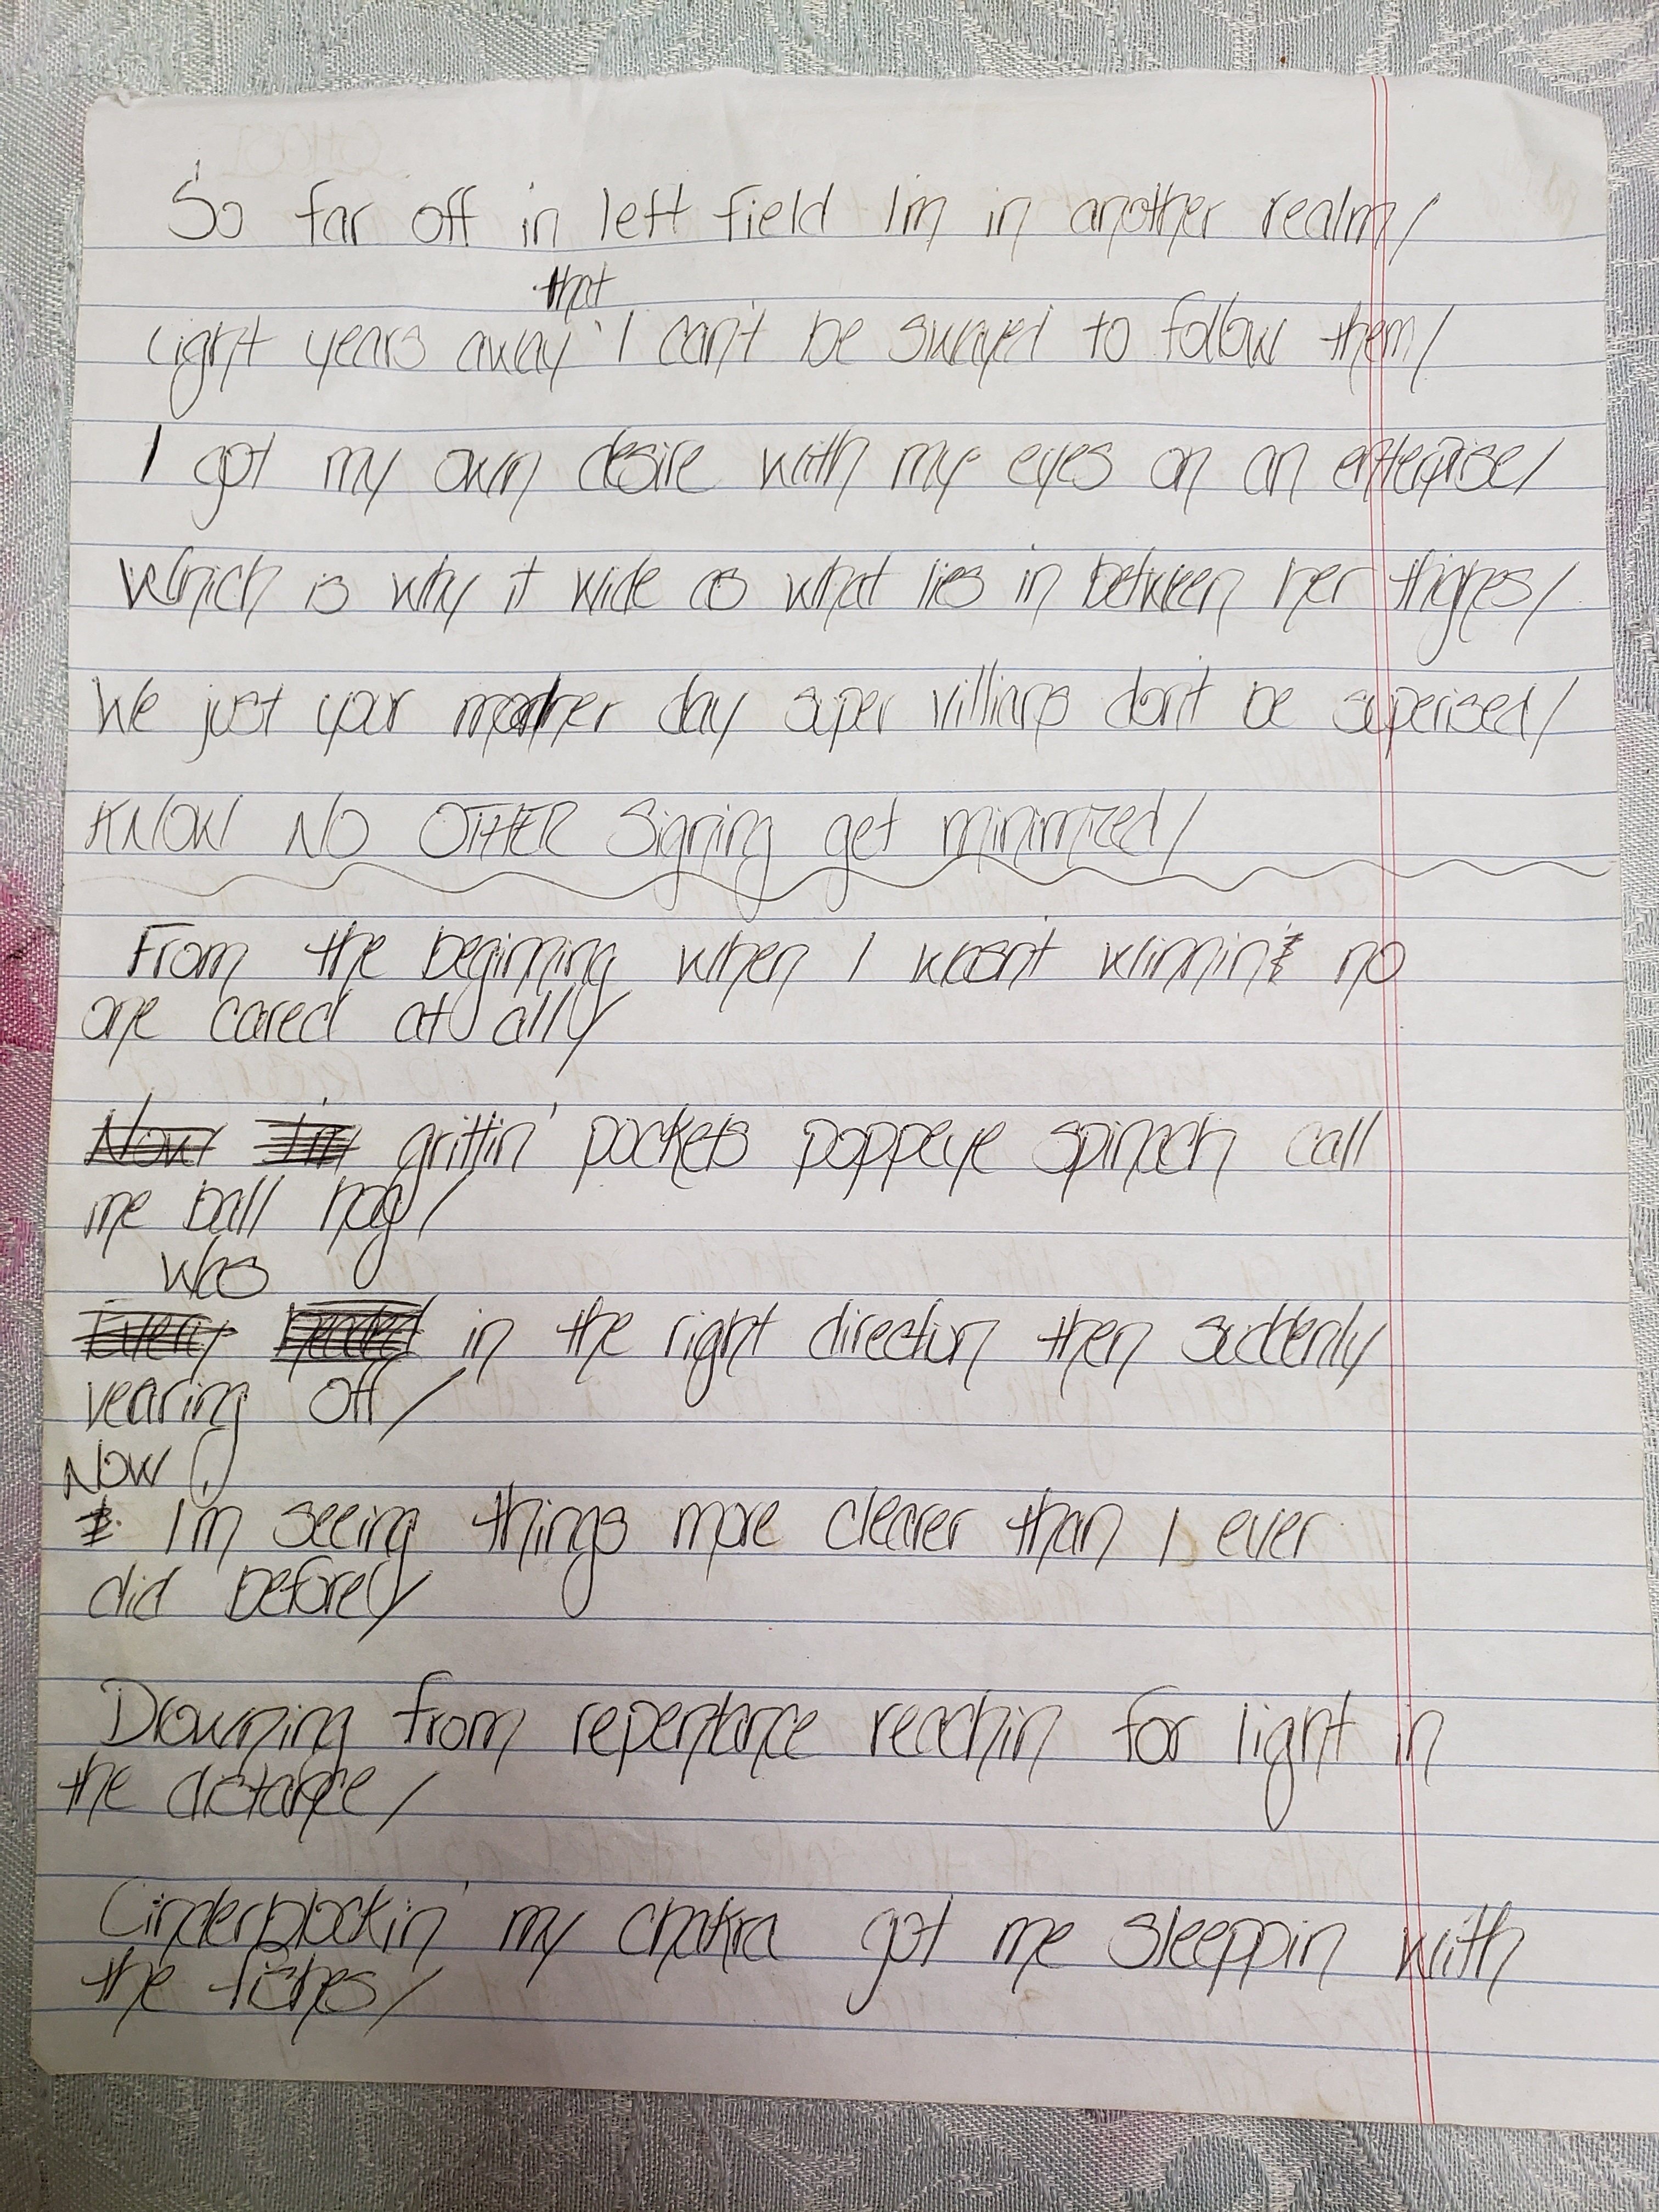 So far off in left field I'm in another realm/
that
Light years away I can't be swayed to follow them/
I got my own desire with my eyes on an enterprise/
Which is why it wide as what lies in between her thighes/
We just your mother day super villians don't be superised/
KNOW NO OTHER Signing get minimized/
From the beginning when I wasn't winnin no
one cared at all/
Now I'm griffin' pockets poppeye spinach call
me ball hog/
was
Every headed in the right direction then suddenly
vearing off/
Now
I'm seeing things more clearer than I ever
did before/
Drowning from repentance reachin for light in
the distance/
Cinderblockin' my chakra got me sleeppin with
the fishes/